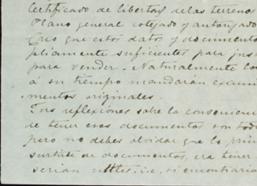 Certificado de libertad de las terrenos
Plano general cotejado y autorizado
Creo que estos datos y documentos
pliamente suficientes para jus
para vender. Naturalmente los
á su tiempo mandarán exami
mentos originales.
Tus reflexiones sobre la conveniencia
de tener esos documentos son
pero no debes olvidar que lo prin
de documentos, era tener
serían